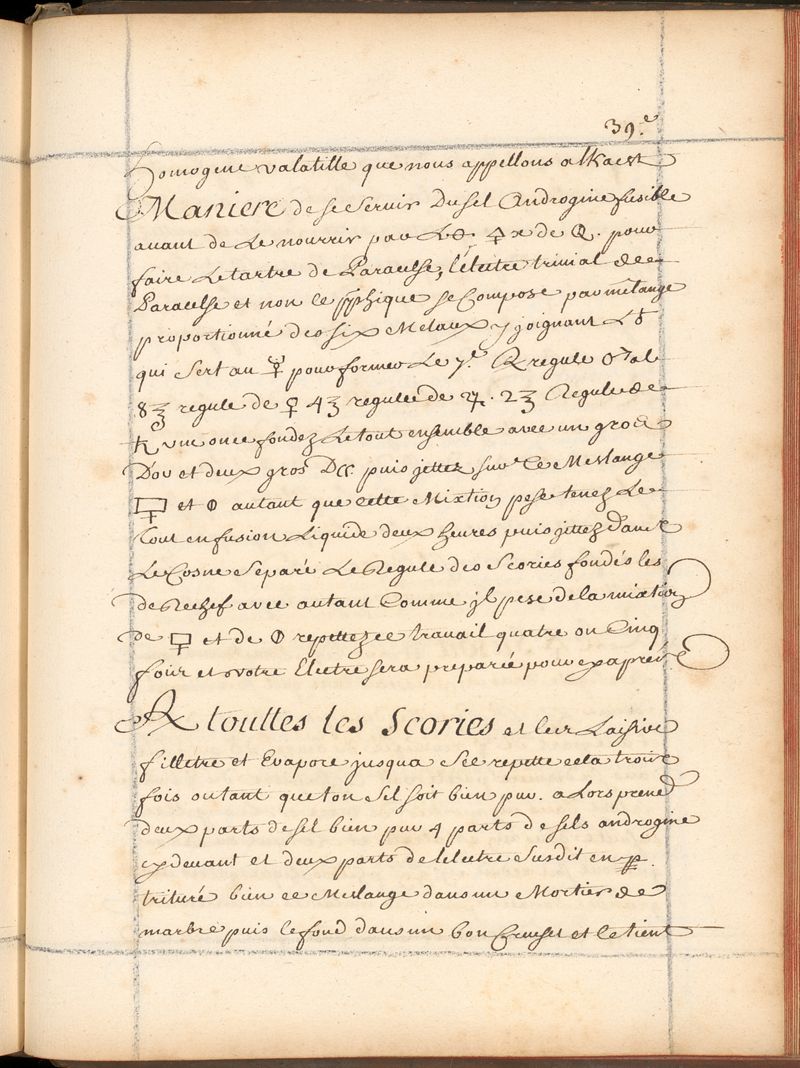 39.e
homogene valatille que nous appellons alkaest
Maniere de se Servir Du sel Androgine fusible
auant de Le nourrir par L de pour
faire Le tartre de Paracelse, l'électre trivial de
Paracelse et non le se Compose par mélange
proportionné des six Metaux y joignant L ♁
qui Sert au ☿ pour former Le 7.e regule ♂ al
8℥ regule de ♀ 4℥ regule de ♃. 2℥ Regule de
♄ vne once fondez Le tout ensemble avec un gros
D'or et deux gros puis jettez sur Ce Meslange
et autant que cette Mixtion pese tenez Le
tout en fusion Liquide deux heures puis jettez dans
Le Cosne Separé Le Regule des Scories fondés les
de Rechef avec autant Comme jl pese de la mixtion
de et de repettez ce travail quatre ou Cinq
fois et votre Electre sera preparée pour
toutles les Scories et leur Laisive
filletre et Evapore jusqua See repette cela trois
fois autant que ton Sel soit bien pur. alors prened
deux parts de sel bien pur 4 parts de sels androgine
cy devant et deux parts de lelectre Susdit en
trituré bien ce Meslange dans un Mortier de
marbre puis le fond dans un bon Creuset et le tient